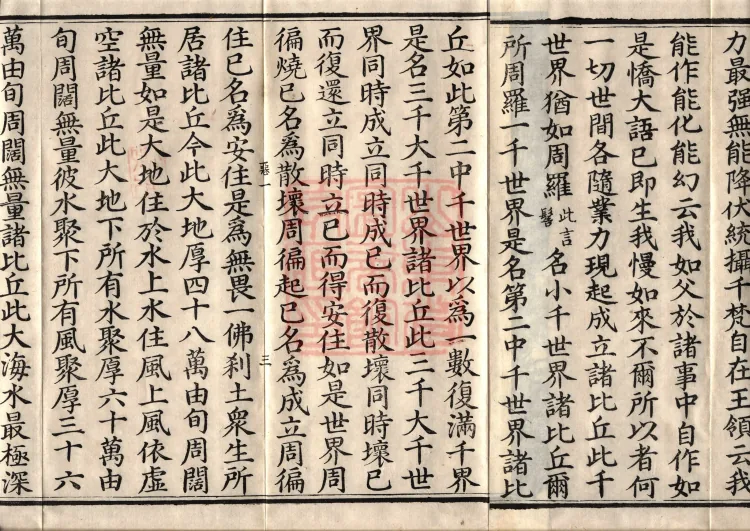 力最强無能降伏統攝千梵自在王領云我
能作能化能幻云我如父於諸事中自作如
是憍大語已即生我慢如來不爾所以者何
一切世間各隨業力現起成立諸比丘此千
世界猶如周羅此言髻名小千世界諸比丘爾
所周羅一千世界是名第二中千世界諸比
丘如此第二中千世界以爲一數復滿千界
是名三千大千世界諸比丘此三千大千世
界同時成立同時成已而復散壞同時壞已
而復還立同時立已而得安住如是世界周
徧燒已名爲散壞周徧起已名爲成立周徧
惡一 三
住已名爲安住是爲無畏一佛刹土衆生所
居諸比丘今此大地厚四十八萬由旬周闊
無量如是大地住於水上水住風上風依虛
空諸比丘此大地下所有水聚厚六十萬由
旬周闊無量彼水聚下所有風聚厚三十六
萬由旬周闊無量諸比丘此大海水最極深